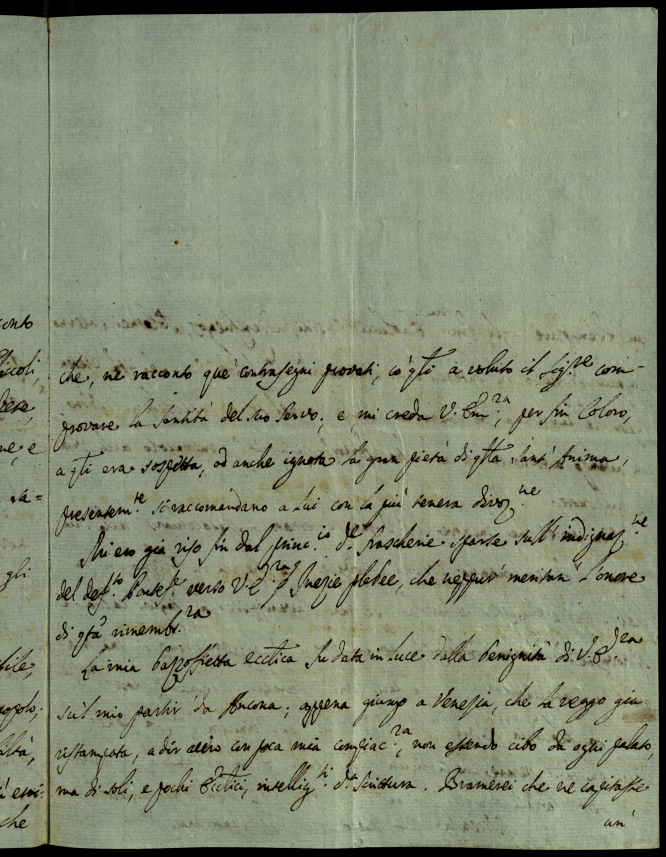 conto
che, ne racconto que' contrasegni provati, co' q'li a voluto il Sig.re com-
provare la Santità del suo Servo; e mi creda V. Em.za, per fin Coloro,
a q'li era sospetta, od anche ignota la gran pietà di q'lla Sant' Anima,
presentem.te si raccomandano a Lui con la più tenera divoz.ne
Mi ero già riso fin dal princ.io d.e frascherie sparse sull' indignaz.ne
del def.to Pontef.e verso V. E.za Inezie plebee, che neppur' meritan' l'onore
di q'sta rimembr.za
La mia eccetica fu data in luce dalla benignità di V. E.za
sul mio partir da Ancona; appena giungo a Venezia, che la veggo già
ristampata, a dir vero con poca mia compiac.za, non essendo cibo da ogni palato,
ma di soli, e pochi intellig.ti d.a Scrittura. Bramerei che ne capitasse
un'
ne, e
sa=
gli
bile,
popolo;
che